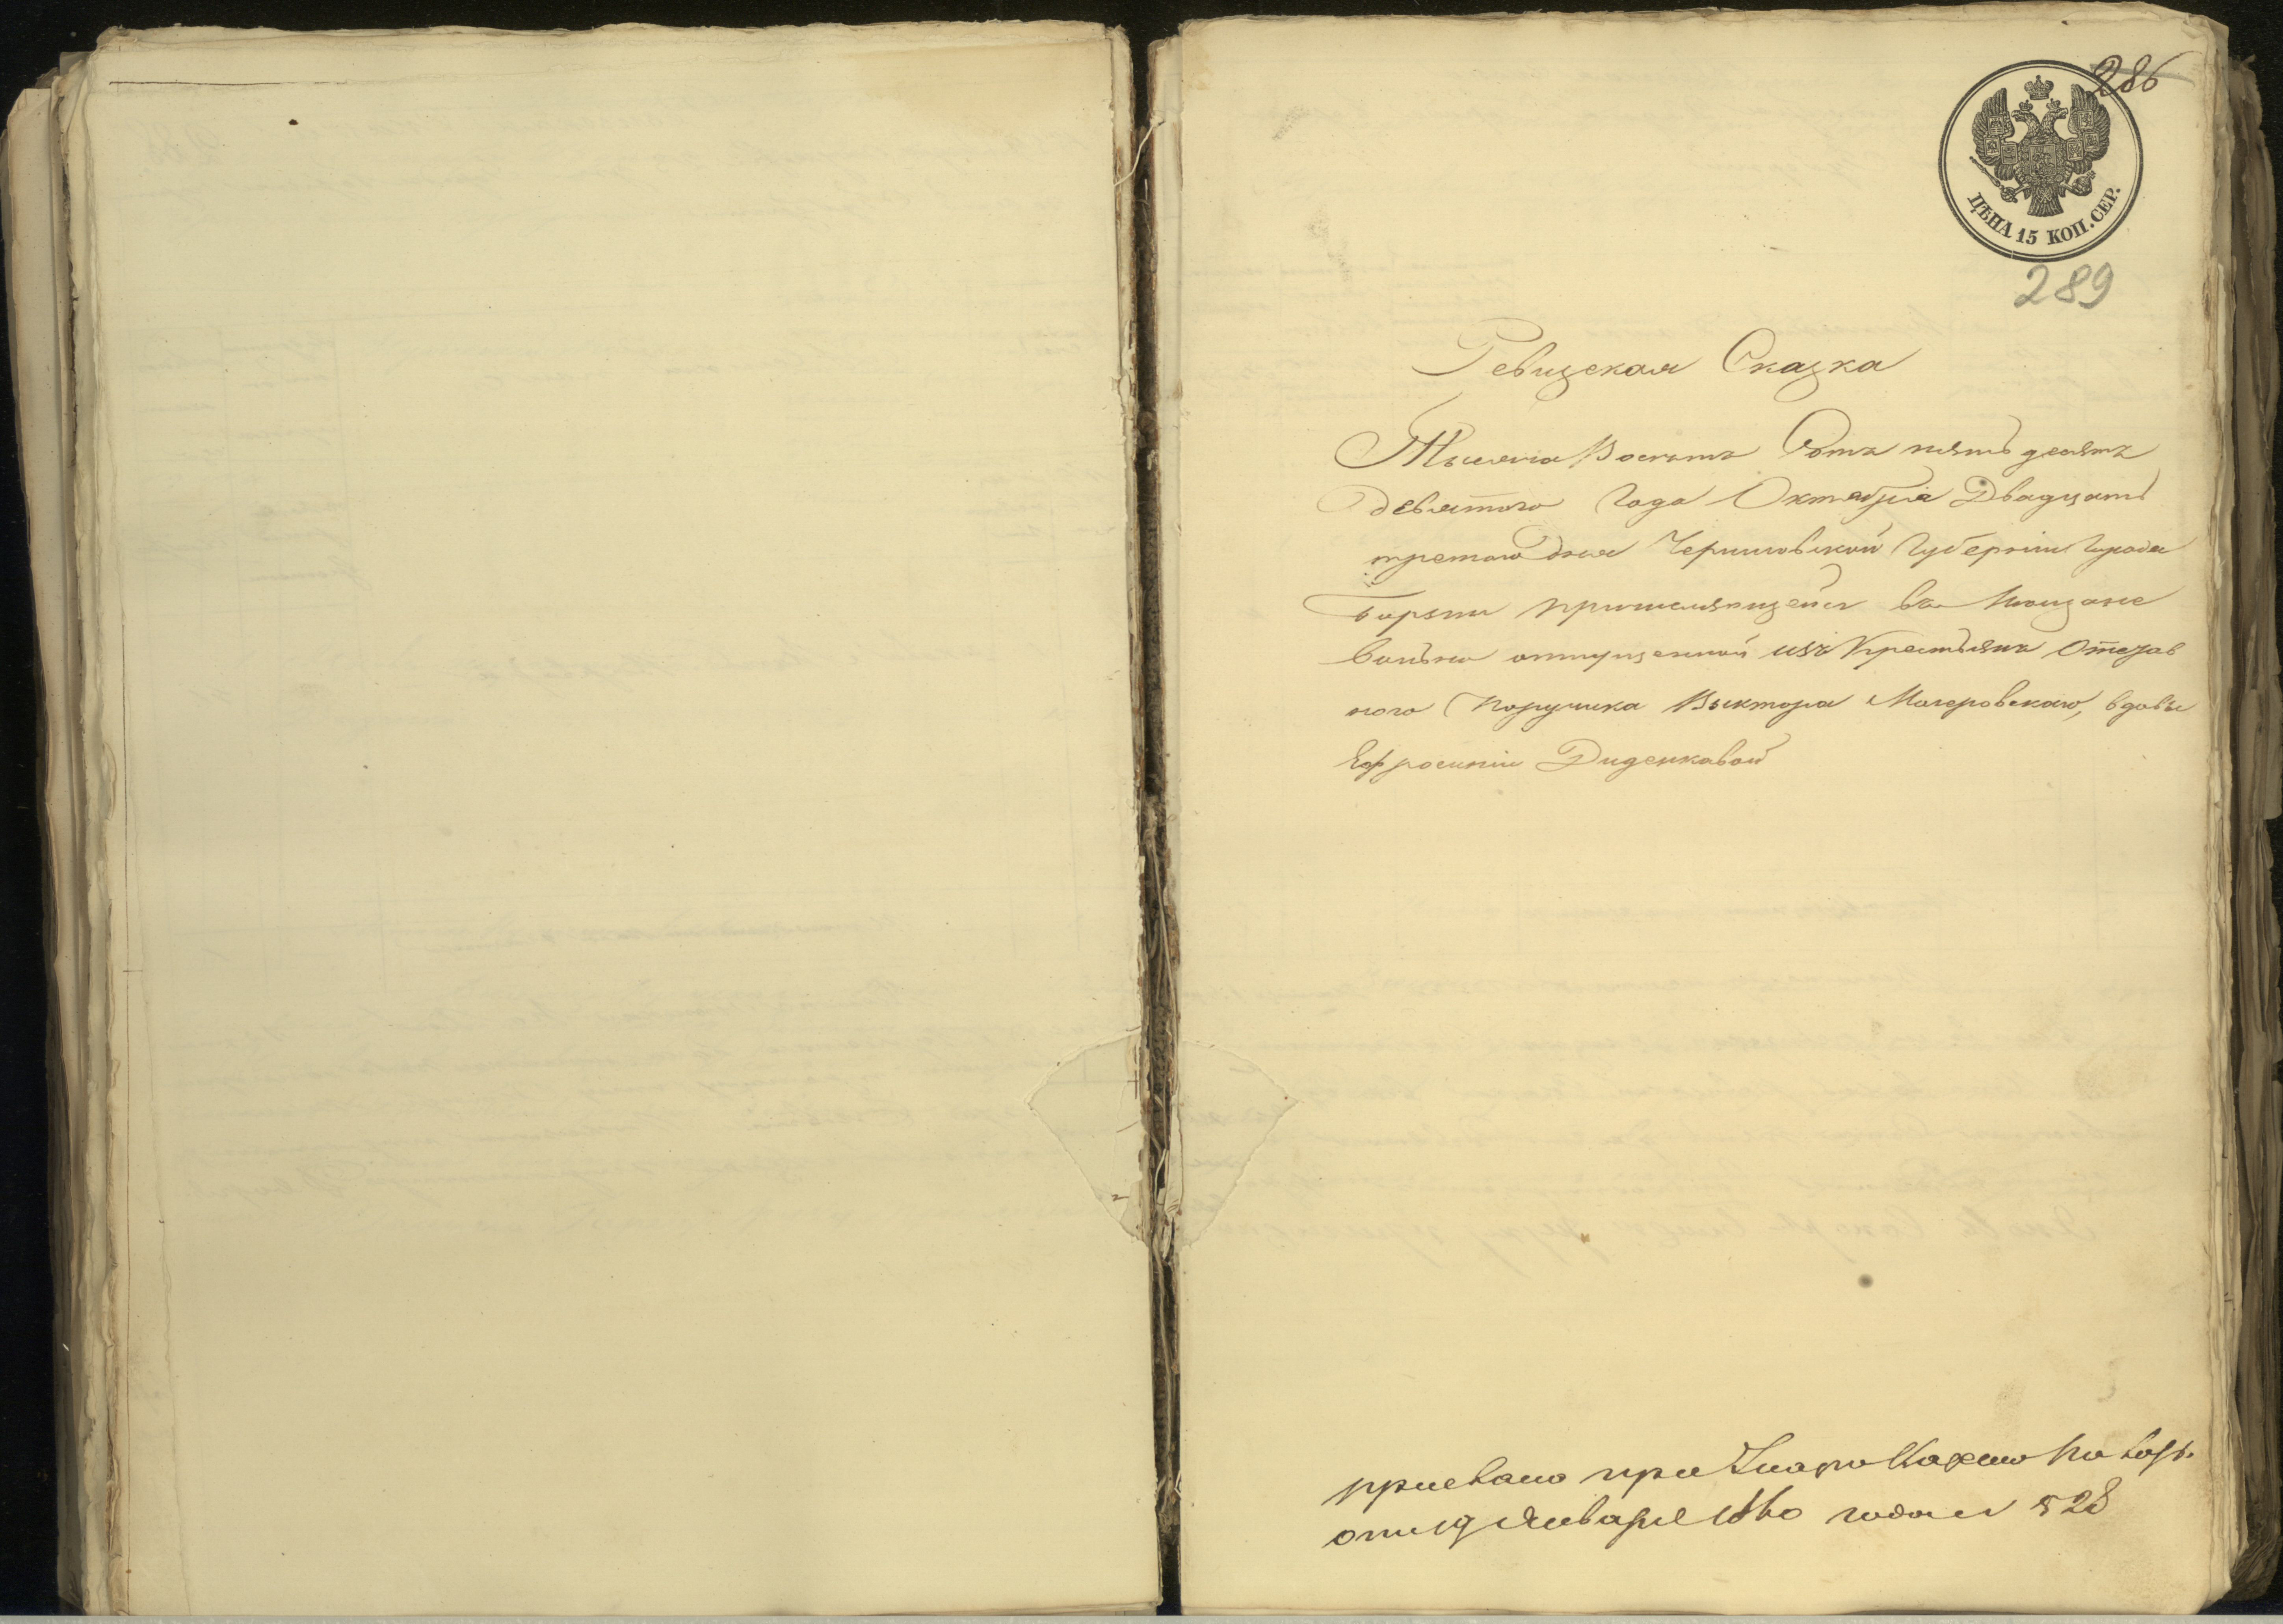 286
ЦѢНА 15 КОП. СЕР.
289
Ревизская Сказка
Тысяча Восемъ Сотъ пятьдесятъ
девятого Года Октября Двадцать
третого дня Черниговской Губерніи Города
Борзны причисляющейся въ Мещане
вольно отпущенной изъ Крестьянъ Отстав
ного Порутчика Выктора Магеровскаго, вдовы
Ефросиніи Диденковой
прислано при
от 19 Января 1860 года № 528